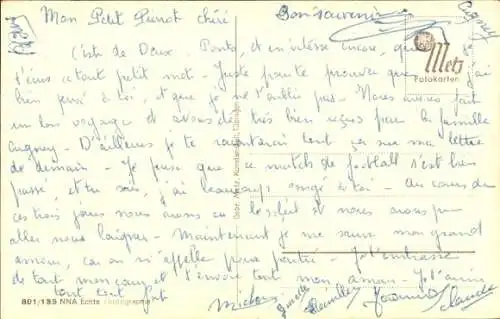 Mon Petit Pierrot chéri
Bon souvenir
Cagney
Metz
Fotokarten
C'est de Deux-Ponts, et en vitesse encore, que
t'écris ce tout petit mot - Juste pour te prouver que j'ai
bien pensé à toi, et que je ne t'oublie pas - Nous avons fait
un bon voyage et avons été très bien reçus par la famille
Cagney - D'ailleurs je te raconterai tout ça sur ma lettre
de demain - Je pense que ce match de football s'est bien
passé, et tu sais, j'ai beaucoup songé à toi - Au cours de
ces trois jours nous avons eu le soleil et nous avons pu
aller nous baigner - Maintenant je me sauve mon grand
amour, car on m'appelle pour partir - Je t'embrasse
de tout mon coeur et t'envoie tout mon amour - Je t'aime
tout tout
Gebr. Metz, Kunstanstalt, Tübingen
801/185 NNA Echte Photographie
Michou
Ginette
Jeannine
Claude